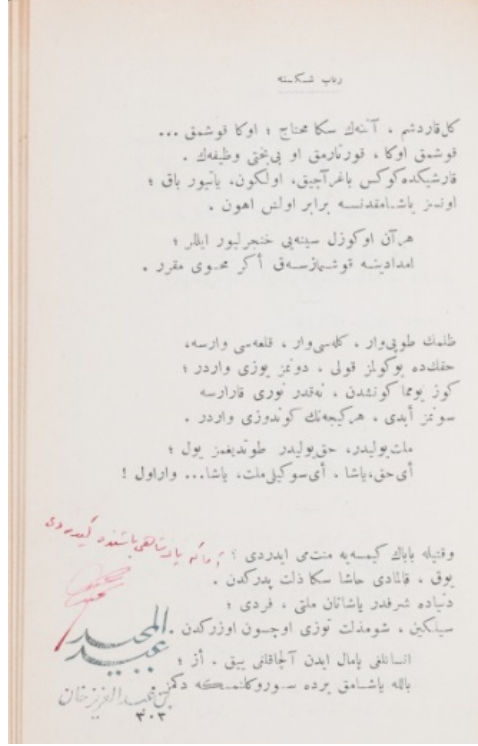 رباب شكسته
كل قاردشم ، آننه‌ك سكا محتاج ؛ اوكا قوشمق ...
قوشمق اوكا ، قورتارمق او بى‌بختى وظيفه‌ك .
قارشيكده كوكس باغر آچيق، اولكون، ياتيور باق ؛
اونسز ياشامقدنسه برابر اولش اهون .
هر آن او كوزل سينه‌يى خنجرليور ايللر ؛
امدادينه قوشمازسه‌ق أكر محوى مقرر .
ظلمك طوپى وار ، كله‌سى وار ، قلعه‌سى وارسه،
حقك‌ده بوكولمز قولى ، دونمز يوزى واردر ؛
كوز يومما كونشدن ، نه‌قدر نورى قارارسه
سونمز أبدى ، هر كيجه‌نك كوندوزى واردر .
ملت يوليدر، حق يوليدر طوتديغمز يول ؛
أى حق، ياشا . أى سوكيلى ملت، ياشا... وار اول !
وقتيله باباك كيمسه‌يه منت‌مى ايدردى ؟
يوق ، قالمادى حاشا سكا ذلت پدركدن .
دنياده شرفدر ياشاتان ملتى ، فردى ؛
سيلكين ، شو مذلت توزى اوچسون اوزركدن .
انسانلغى پامال ايدن آلچاقلغى ييق ، أز ؛
بالله ياشامق يرده سوروكلنمكه دكمز
عبد المجيد
بن عبد العزيز خان